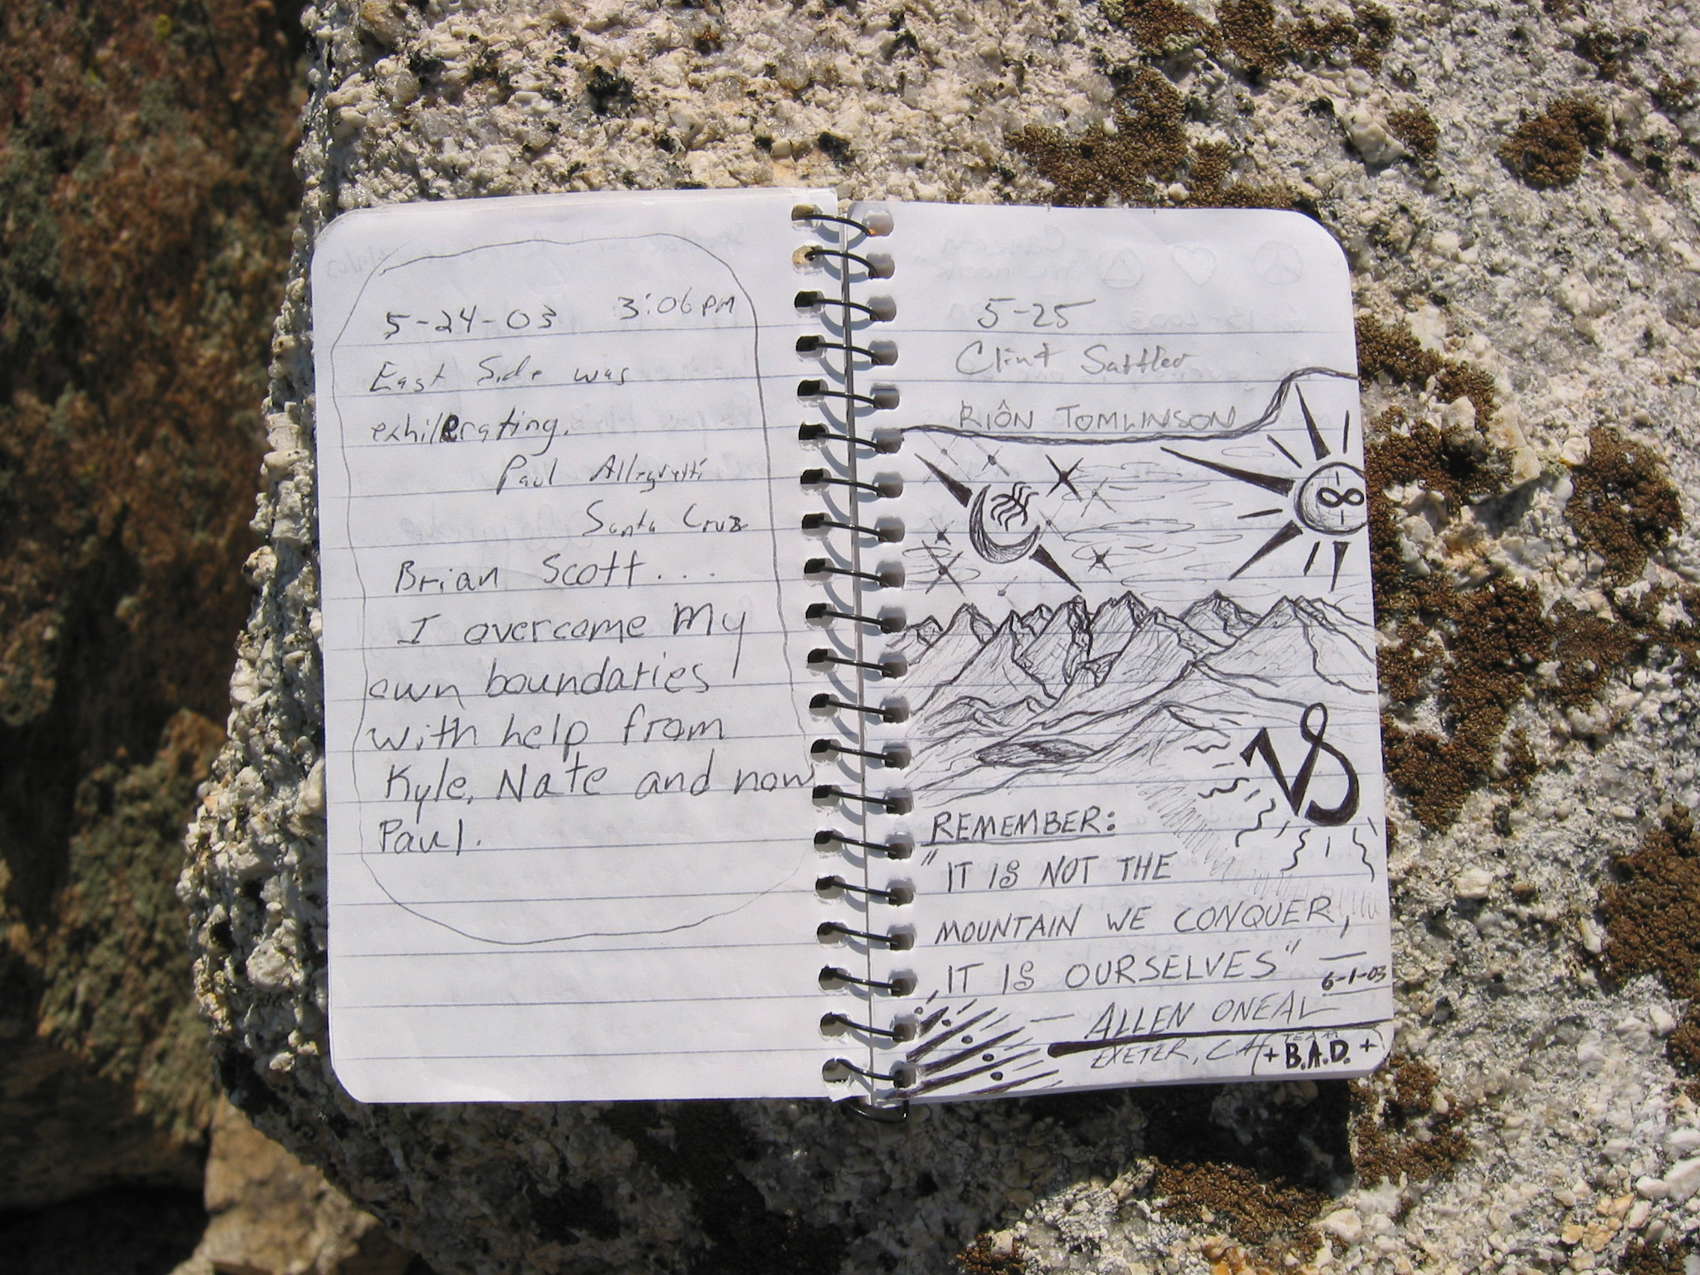 5-24-03 3:06 PM
East Side was
exhilerating.
Paul Allegretti
Santa Cruz
Brian Scott...
I overcame My
own boundaries
with help from
Kyle, Nate and now
Paul.
5-25
Clint Sattler
RIÔN TOMLINSON
REMEMBER:
"IT IS NOT THE
MOUNTAIN WE CONQUER,
IT IS OURSELVES"
6-1-03
— ALLEN ONEAL
EXETER, CA
TEAM
+ B.A.D. +